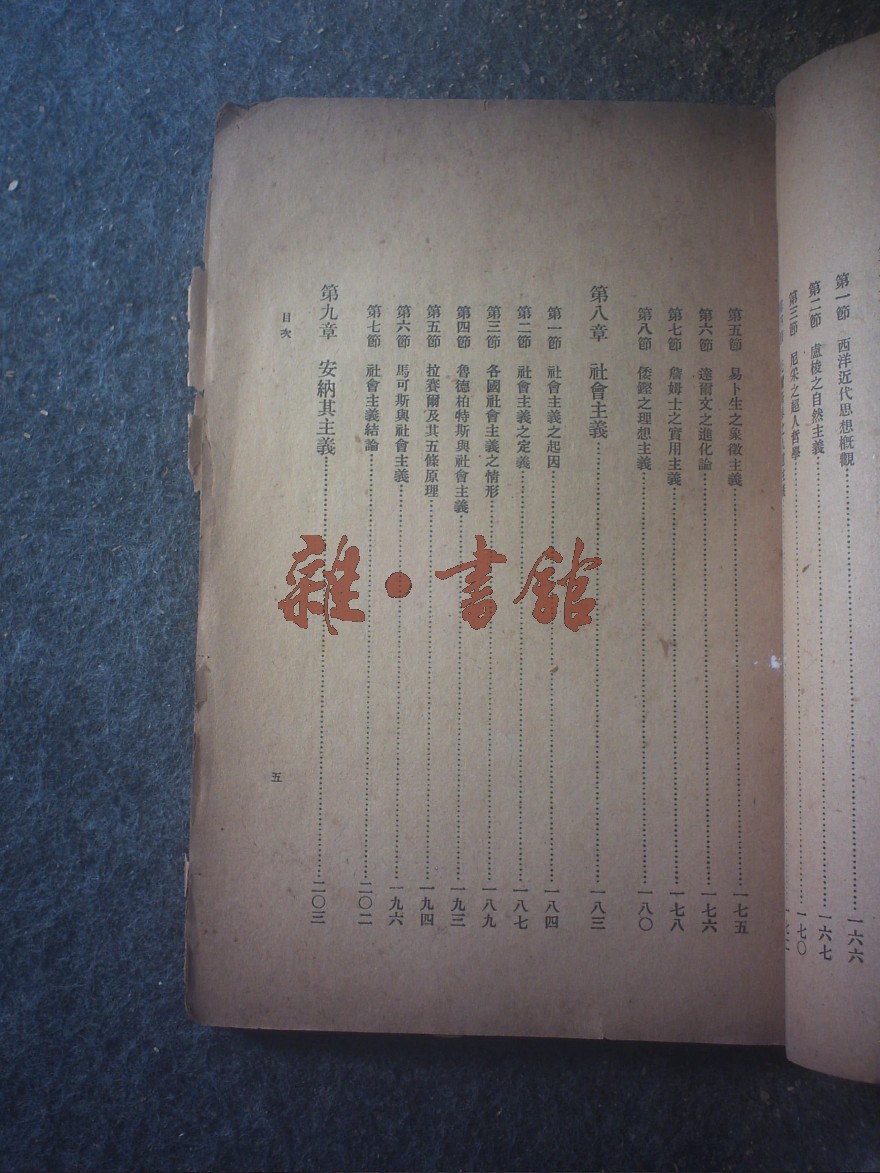 第一節 西洋近代思想概觀……一六六
第二節 盧梭之自然主義……一六七
第三節 尼采之超人哲學……一七〇
第五節 易卜生之象徵主義……一七五
第六節 達爾文之進化論……一七六
第七節 詹姆士之實用主義……一七八
第八節 倭鏗之理想主義……一八〇
第八章 社會主義……一八三
第一節 社會主義之起因……一八四
第二節 社會主義之定義……一八七
第三節 各國社會主義之情形……一八九
第四節 魯德柏特斯與社會主義……一九三
第五節 拉賽爾及其五條原理……一九四
第六節 馬可斯與社會主義……一九六
第七節 社會主義結論……二〇二
第九章 安納其主義……二〇三
目次
五
雜·書館